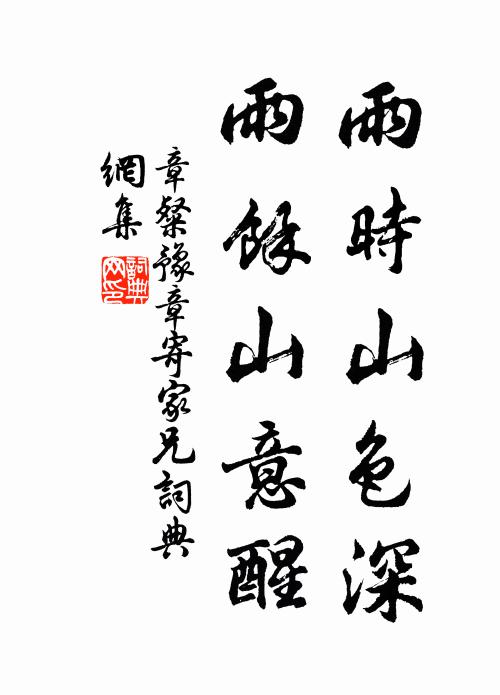 雨時山色深
雨餘山意醒
章粲豫章寄家兄詞典
網集
詞典
网